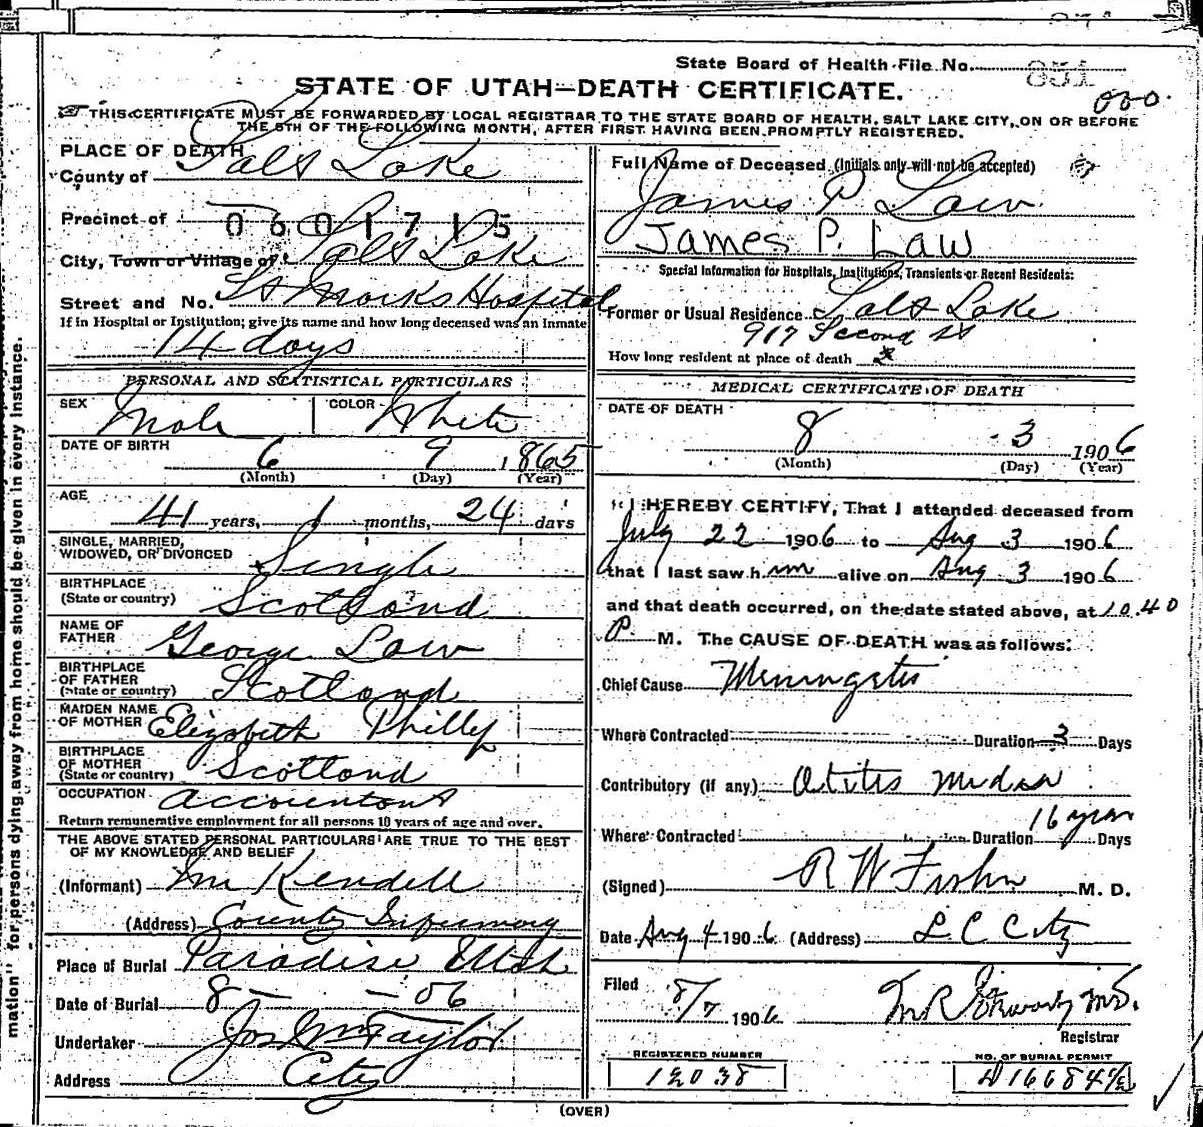 State Board of Health File No. 851
STATE OF UTAH—DEATH CERTIFICATE.
000
THIS CERTIFICATE MUST BE FORWARDED BY LOCAL REGISTRAR TO THE STATE BOARD OF HEALTH, SALT LAKE CITY, ON OR BEFORE
THE 5TH OF THE FOLLOWING MONTH, AFTER FIRST HAVING BEEN PROMPTLY REGISTERED.
PLACE OF DEATH
County of Salt Lake
Precinct of
0601715
City, Town or Village of Salt Lake
Street and No. St Marks Hospital
If in Hospital or Institution; give its name and how long deceased was an inmate
14 days
PERSONAL AND STATISTICAL PARTICULARS
SEX Male COLOR White
DATE OF BIRTH 6 9 1865
(Month) (Day) (Year)
AGE
41 years, 1 months, 24 days
SINGLE, MARRIED,
WIDOWED, OR DIVORCED Single
BIRTHPLACE
(State or country) Scotland
NAME OF
FATHER George Law
BIRTHPLACE
OF FATHER
(State or country) Scotland
MAIDEN NAME
OF MOTHER Elizabeth Phillp
BIRTHPLACE
OF MOTHER
(State or country) Scotland
OCCUPATION Accountant
Return remunerative employment for all persons 10 years of age and over.
THE ABOVE STATED PERSONAL PARTICULARS ARE TRUE TO THE BEST
OF MY KNOWLEDGE AND BELIEF
(Informant) Wm Kendell
(Address) County Infirmary
Place of Burial Paradise, Utah
Date of Burial 8 — — 06
Undertaker Jos Wm Taylor
Address City
Full Name of Deceased (Initials only will not be accepted)
James P. Law
James P. Law
Special Information for Hospitals, Institutions, Transients or Recent Residents:
Former or Usual Residence Salt Lake
917 Second St
How long resident at place of death
MEDICAL CERTIFICATE OF DEATH
DATE OF DEATH
8 3 1906
(Month) (Day) (Year)
I HEREBY CERTIFY, That I attended deceased from
July 22 1906 to Aug 3 1906
that I last saw h im alive on Aug 3 1906
and that death occurred, on the date stated above, at 10.40
P. M. The CAUSE OF DEATH was as follows:
Chief Cause Meningitis
Where Contracted Duration 3 Days
Contributory (if any) Otitis Media
16 years
Where Contracted Duration Days
(Signed) R W Fisher M. D.
Date Aug 4 1906 (Address) S L City
Filed 8/7 1906 M.D.
Registrar
REGISTERED NUMBER
12038
NO. OF BURIAL PERMIT
(OVER)
mation" for persons dying away from home should be given in every instance.